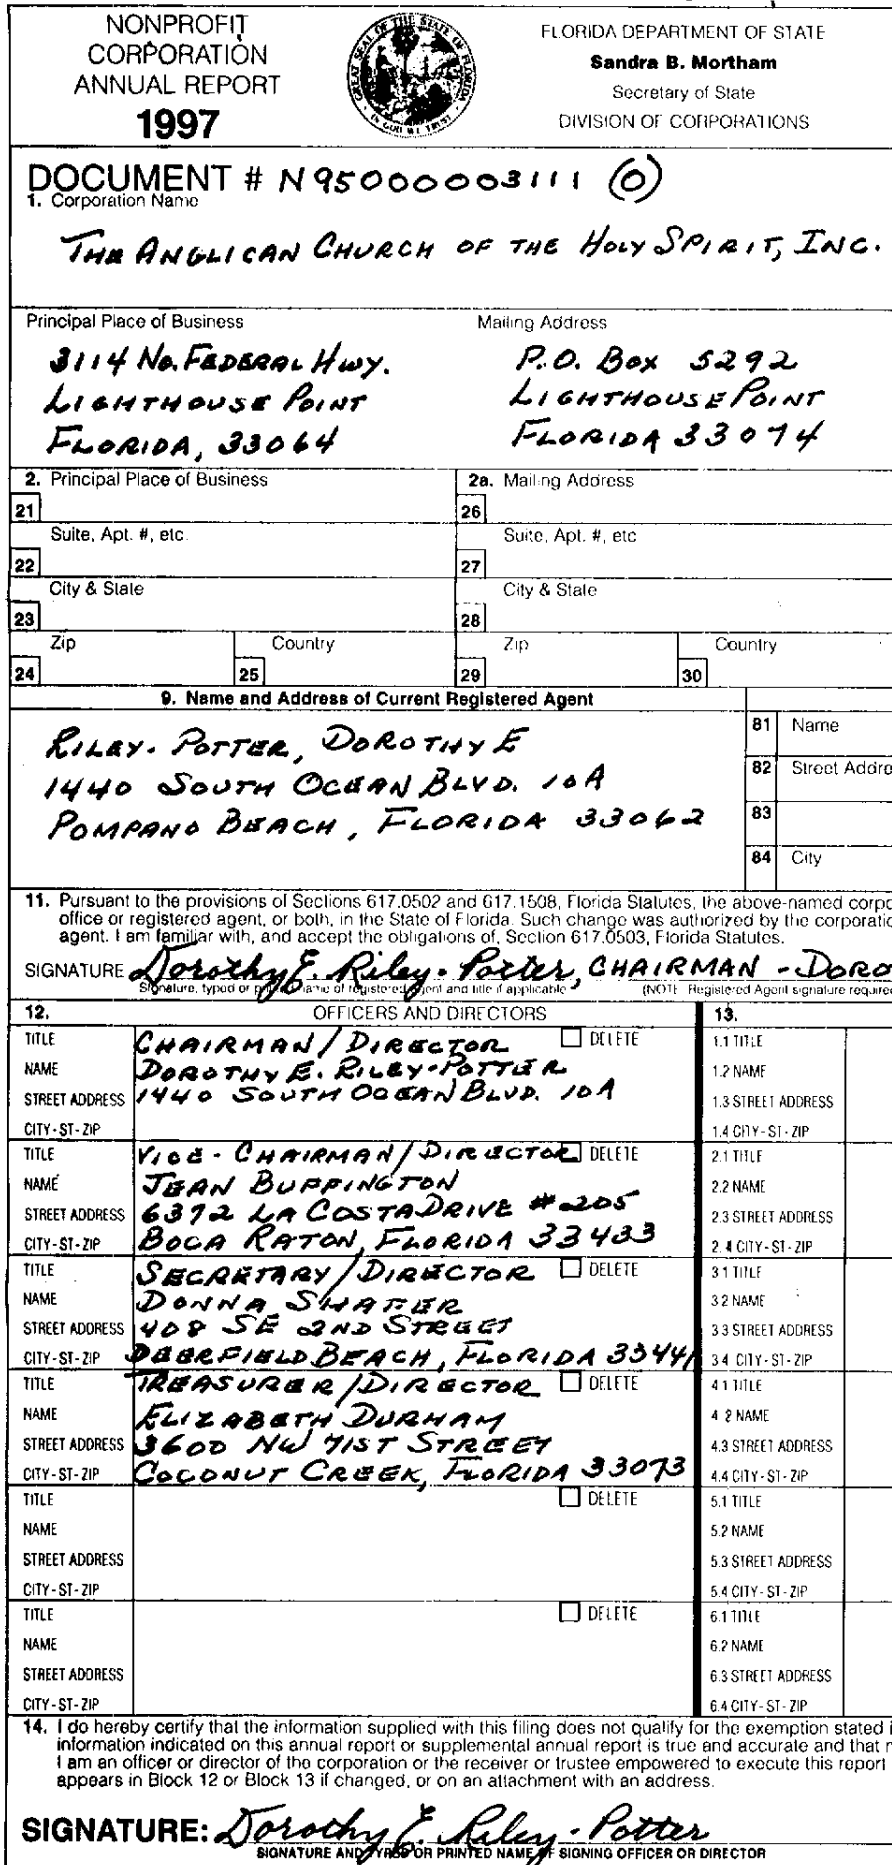 NONPROFIT
CORPORATION
ANNUAL REPORT
1997
GREAT SEAL OF THE STATE OF FLORIDA
IN GOD WE TRUST
FLORIDA DEPARTMENT OF STATE
Sandra B. Mortham
Secretary of State
DIVISION OF CORPORATIONS
DOCUMENT # N95000003111 (0)
1. Corporation Name
THE ANGLICAN CHURCH OF THE HOLY SPIRIT, INC.
Principal Place of Business
3114 NO. FEDERAL HWY.
LIGHTHOUSE POINT
FLORIDA, 33064
Mailing Address
P.O. BOX 5292
LIGHTHOUSE POINT
FLORIDA 33074
2. Principal Place of Business
2a. Mailing Address
21
26
Suite, Apt. #, etc.
Suite, Apt. #, etc
22
27
City & State
City & State
23
28
Zip
Country
Zip
Country
24
25
29
30
9. Name and Address of Current Registered Agent
RILEY-POTTER, DOROTHY E
1440 SOUTH OCEAN BLVD. 10A
POMPANO BEACH, FLORIDA 33062
81 Name
82 Street Addre
83
84 City
11. Pursuant to the provisions of Sections 617.0502 and 617.1508, Florida Statutes, the above-named corpo
office or registered agent, or both, in the State of Florida. Such change was authorized by the corporatio
agent. I am familiar with, and accept the obligations of, Section 617.0503, Florida Statutes.
SIGNATURE Dorothy E. Riley-Potter, CHAIRMAN - DORO
Signature, typed or printed name of registered agent and title if applicable
(NOTE Registered Agent signature require
12. OFFICERS AND DIRECTORS
13.
TITLE CHAIRMAN/DIRECTOR DELETE
NAME DOROTHY E. RILEY-POTTER
STREET ADDRESS 1440 SOUTH OCEAN BLVD. 10A
CITY-ST-ZIP
1.1 TITLE
1.2 NAME
1.3 STREET ADDRESS
1.4 CITY-ST-ZIP
TITLE VICE-CHAIRMAN/DIRECTOR DELETE
NAME JEAN BUFFINGTON
STREET ADDRESS 6372 LA COSTA DRIVE #205
CITY-ST-ZIP BOCA RATON, FLORIDA 33433
2.1 TITLE
2.2 NAME
2.3 STREET ADDRESS
2.4 CITY-ST-ZIP
TITLE SECRETARY/DIRECTOR DELETE
NAME DONNA SHAFER
STREET ADDRESS 408 SE 2ND STREET
CITY-ST-ZIP DEERFIELD BEACH, FLORIDA 33441
3.1 TITLE
3.2 NAME
3.3 STREET ADDRESS
3.4 CITY-ST-ZIP
TITLE TREASURER/DIRECTOR DELETE
NAME ELIZABETH DURHAM
STREET ADDRESS 3600 NW 71ST STREET
CITY-ST-ZIP COCONUT CREEK, FLORIDA 33073
4.1 TITLE
4.2 NAME
4.3 STREET ADDRESS
4.4 CITY-ST-ZIP
TITLE DELETE
NAME
STREET ADDRESS
CITY-ST-ZIP
5.1 TITLE
5.2 NAME
5.3 STREET ADDRESS
5.4 CITY-ST-ZIP
TITLE DELETE
NAME
STREET ADDRESS
CITY-ST-ZIP
6.1 TITLE
6.2 NAME
6.3 STREET ADDRESS
6.4 CITY-ST-ZIP
14. I do hereby certify that the information supplied with this filing does not qualify for the exemption stated i
information indicated on this annual report or supplemental annual report is true and accurate and that m
I am an officer or director of the corporation or the receiver or trustee empowered to execute this report
appears in Block 12 or Block 13 if changed, or on an attachment with an address.
SIGNATURE: Dorothy E. Riley-Potter
SIGNATURE AND TYPED OR PRINTED NAME OF SIGNING OFFICER OR DIRECTOR